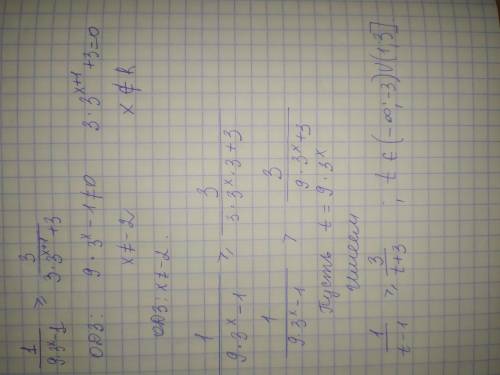 1/(9·3^x-1) ≥ 3/(3·3^(x+1)+3)
ОДЗ: 9·3^x-1≠0 3·3^(x+1)+3=0
x≠-2 x∉R
ОДЗ: x≠-2.
1/(9·3^x-1) ≥ 3/(3·3^x·3+3)
1/(9·3^x-1) ≥ 3/(9·3^x+3)
Пусть t=9·3^x
Имеем
1/(t-1) ≥ 3/(t+3) ; t∈(-∞;-3)∪(1,3]